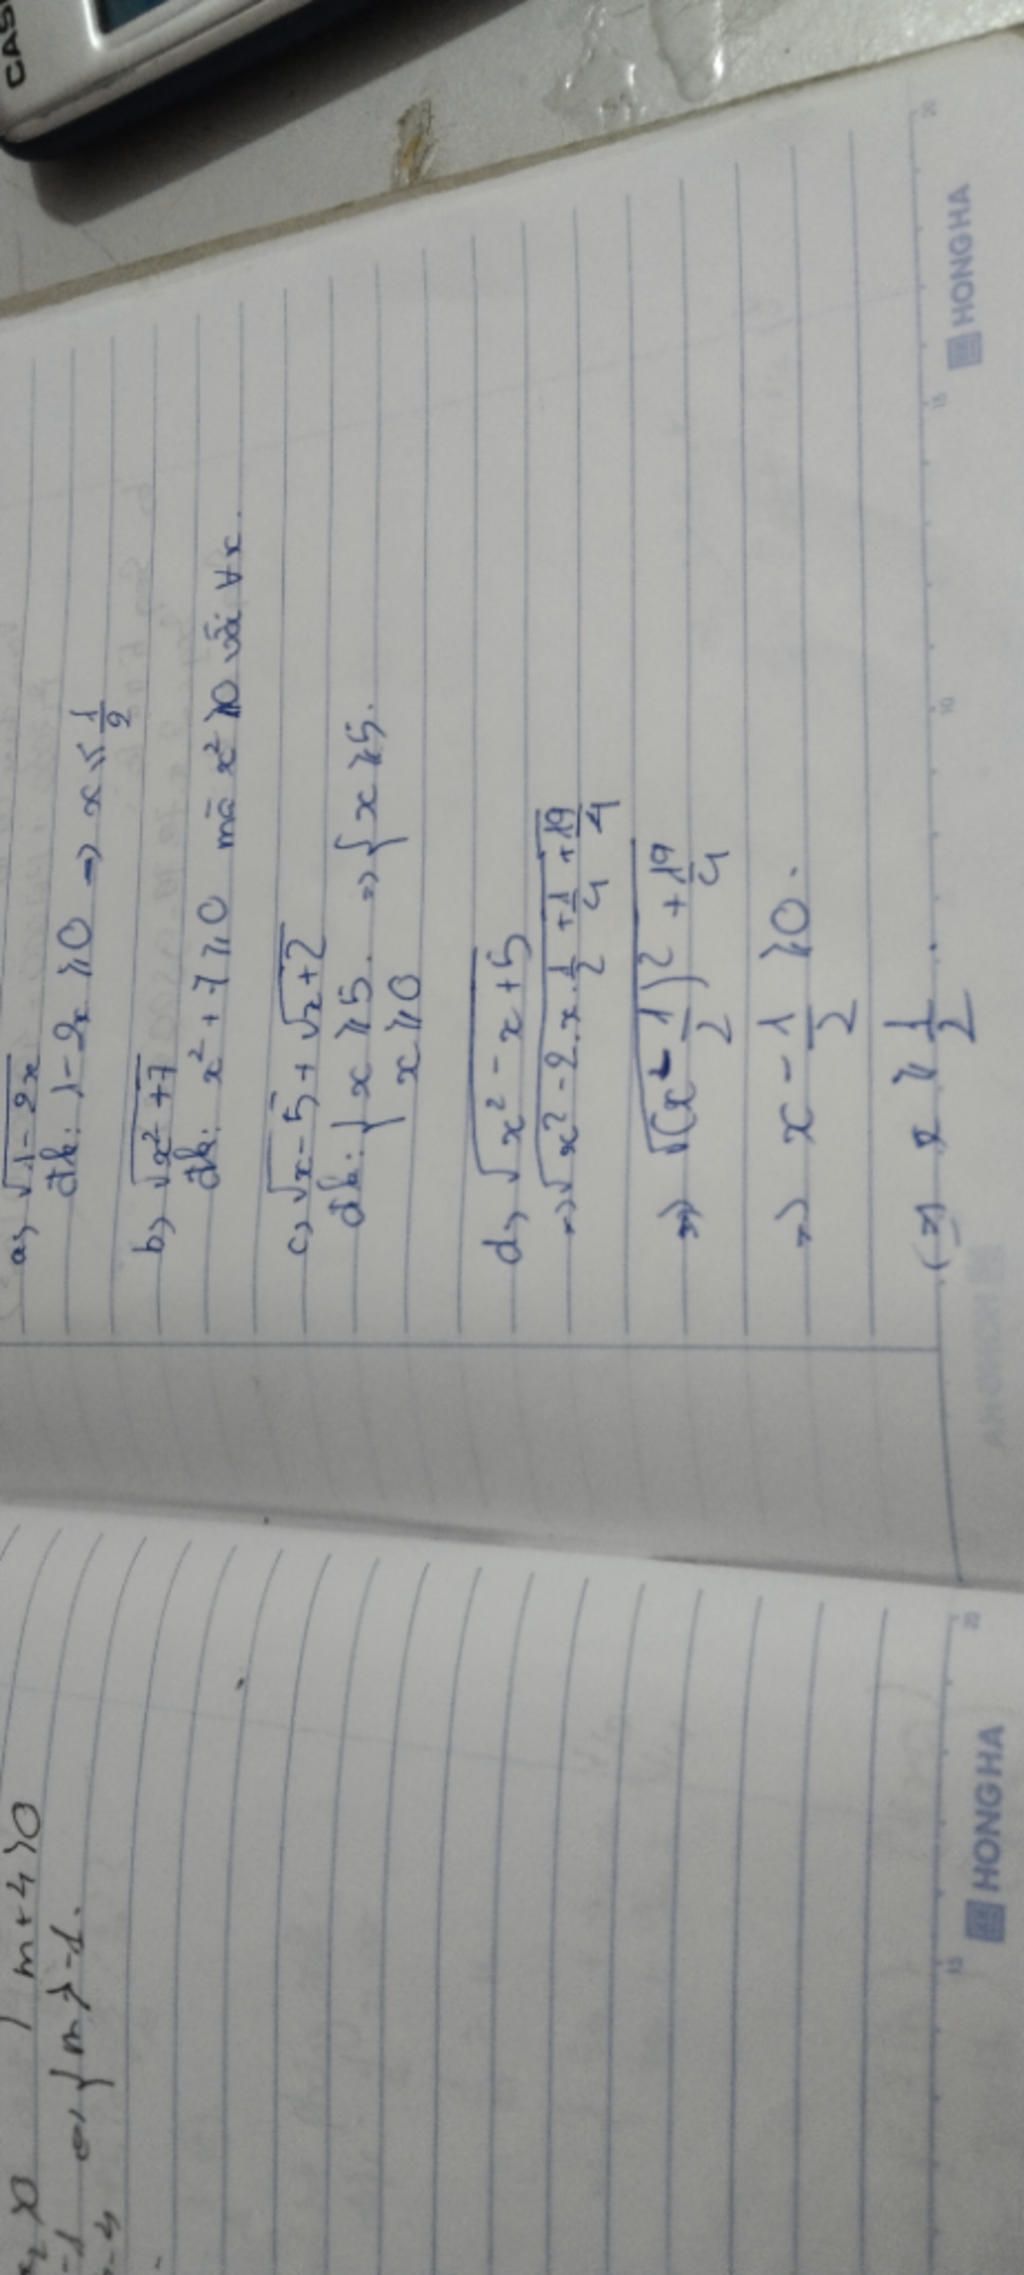 CAS
a, √1-2x
đk: 1-2x ≥ 0 → x ≤ 1/2
b, √x²+7
đk: x²+7 ≥ 0 mà x² ≥ 0 với ∀x.
c, √x-5 + √x+2
đk: { x ≥ 5. => { x ≥ 5.
x ≥ 0
d, √x²-x+5
=> √x²-2.x.1/2+1/4+19/4
=> √(x-1/2)²+19/4
=> x-1/2 ≥ 0.
(=) x ≥ 1/2.
HONG HA
20
15
10
m+4 ≥ 0
{ m ≥ -1.
HONG HA
20
15